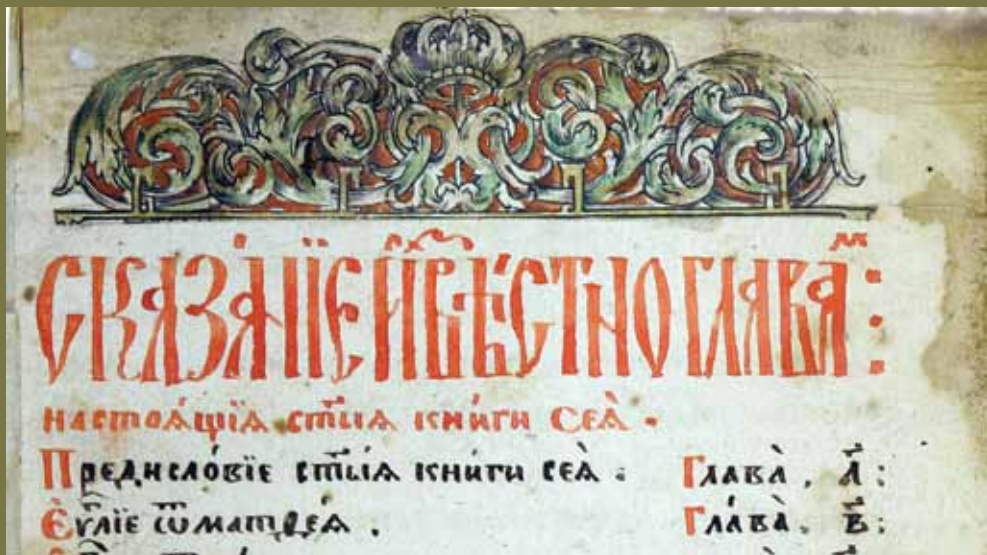 СКАЗА́НЇЕ И҆ⷥВѢ́СТНО ГЛАВАⷨ :
настоѧ́щїѧ ст҃ыѧ кни́ги сеѧ̀ .
Предисло́вїе ст҃ы́ѧ кни́ги сеѧ̀ : Глава̀ . а҃ :
Є҆ѵⷢ҇лїе ѿ матѳе́ѧ . Глава̀ . в҃ :